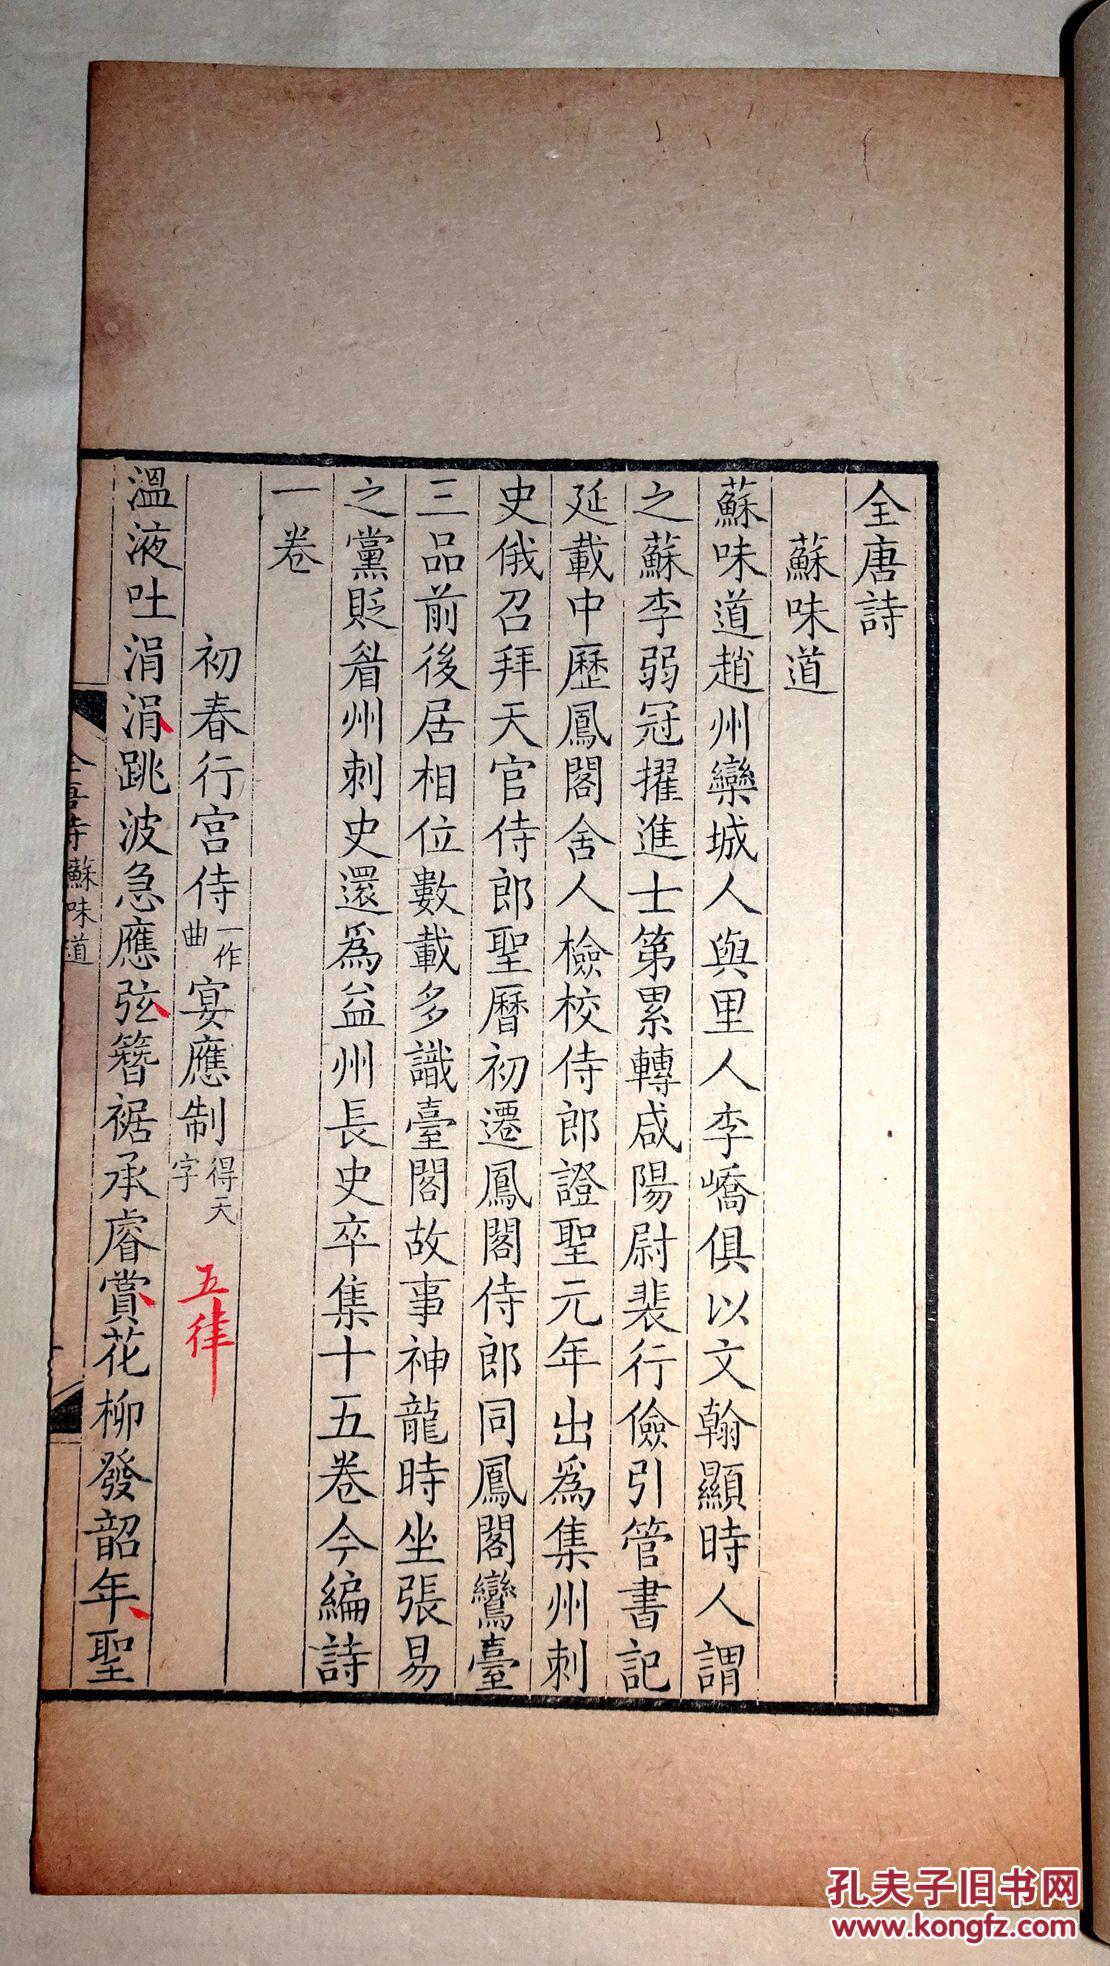 全唐詩
蘇味道
蘇味道趙州欒城人與里人李嶠俱以文翰顯時人謂
之蘇李弱冠擢進士第累轉咸陽尉裴行儉引管書記
延載中歷鳳閣舍人檢校侍郎證聖元年出爲集州刺
史俄召拜天官侍郎聖曆初遷鳳閣侍郎同鳳閣鸞臺
三品前後居相位數載多識臺閣故事神龍時坐張易
之黨貶眉州刺史還爲益州長史卒集十五卷今編詩
一卷
初春行宮侍一作曲宴應制得天字 五律
溫液吐涓涓跳波急應弦簪裾承睿賞花柳發韶年聖
全唐詩 蘇味道
孔夫子旧书网
www.kongfz.com